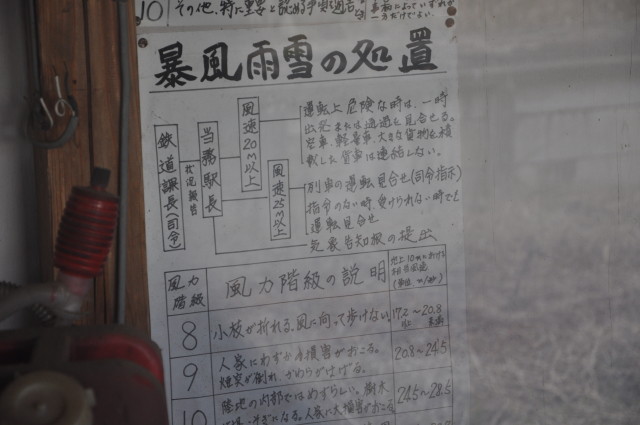 10 その他、特に重要と認める事項を通告
暴風雨雪の処置
鉄道課長(司令)
状況報告
当務駅長
風速20m以上
運転上危険な時は、一時
出発または通過を見合せる。
空車、軽量車、大きな貨物を積
載した貨車は連結しない。
風速25m以上
列車の運転見合せ(司令指示)
指令のない時、受けられない時でも
運転見合せ
気象告知板の提出
風力
階級
風力階級の説明
地上10mにおける
相当風速
(単位 m/秒)
8 小枝が折れる、風に向って歩けない 17.2〜20.8
以上 未満
9 人家にわずかな損害がおこる。
煙突が倒れ、かわらがはげる。
20.8〜24.5
10 陸地の内部ではめずらしい。樹木
人家に大損害がおこる
24.5〜28.5